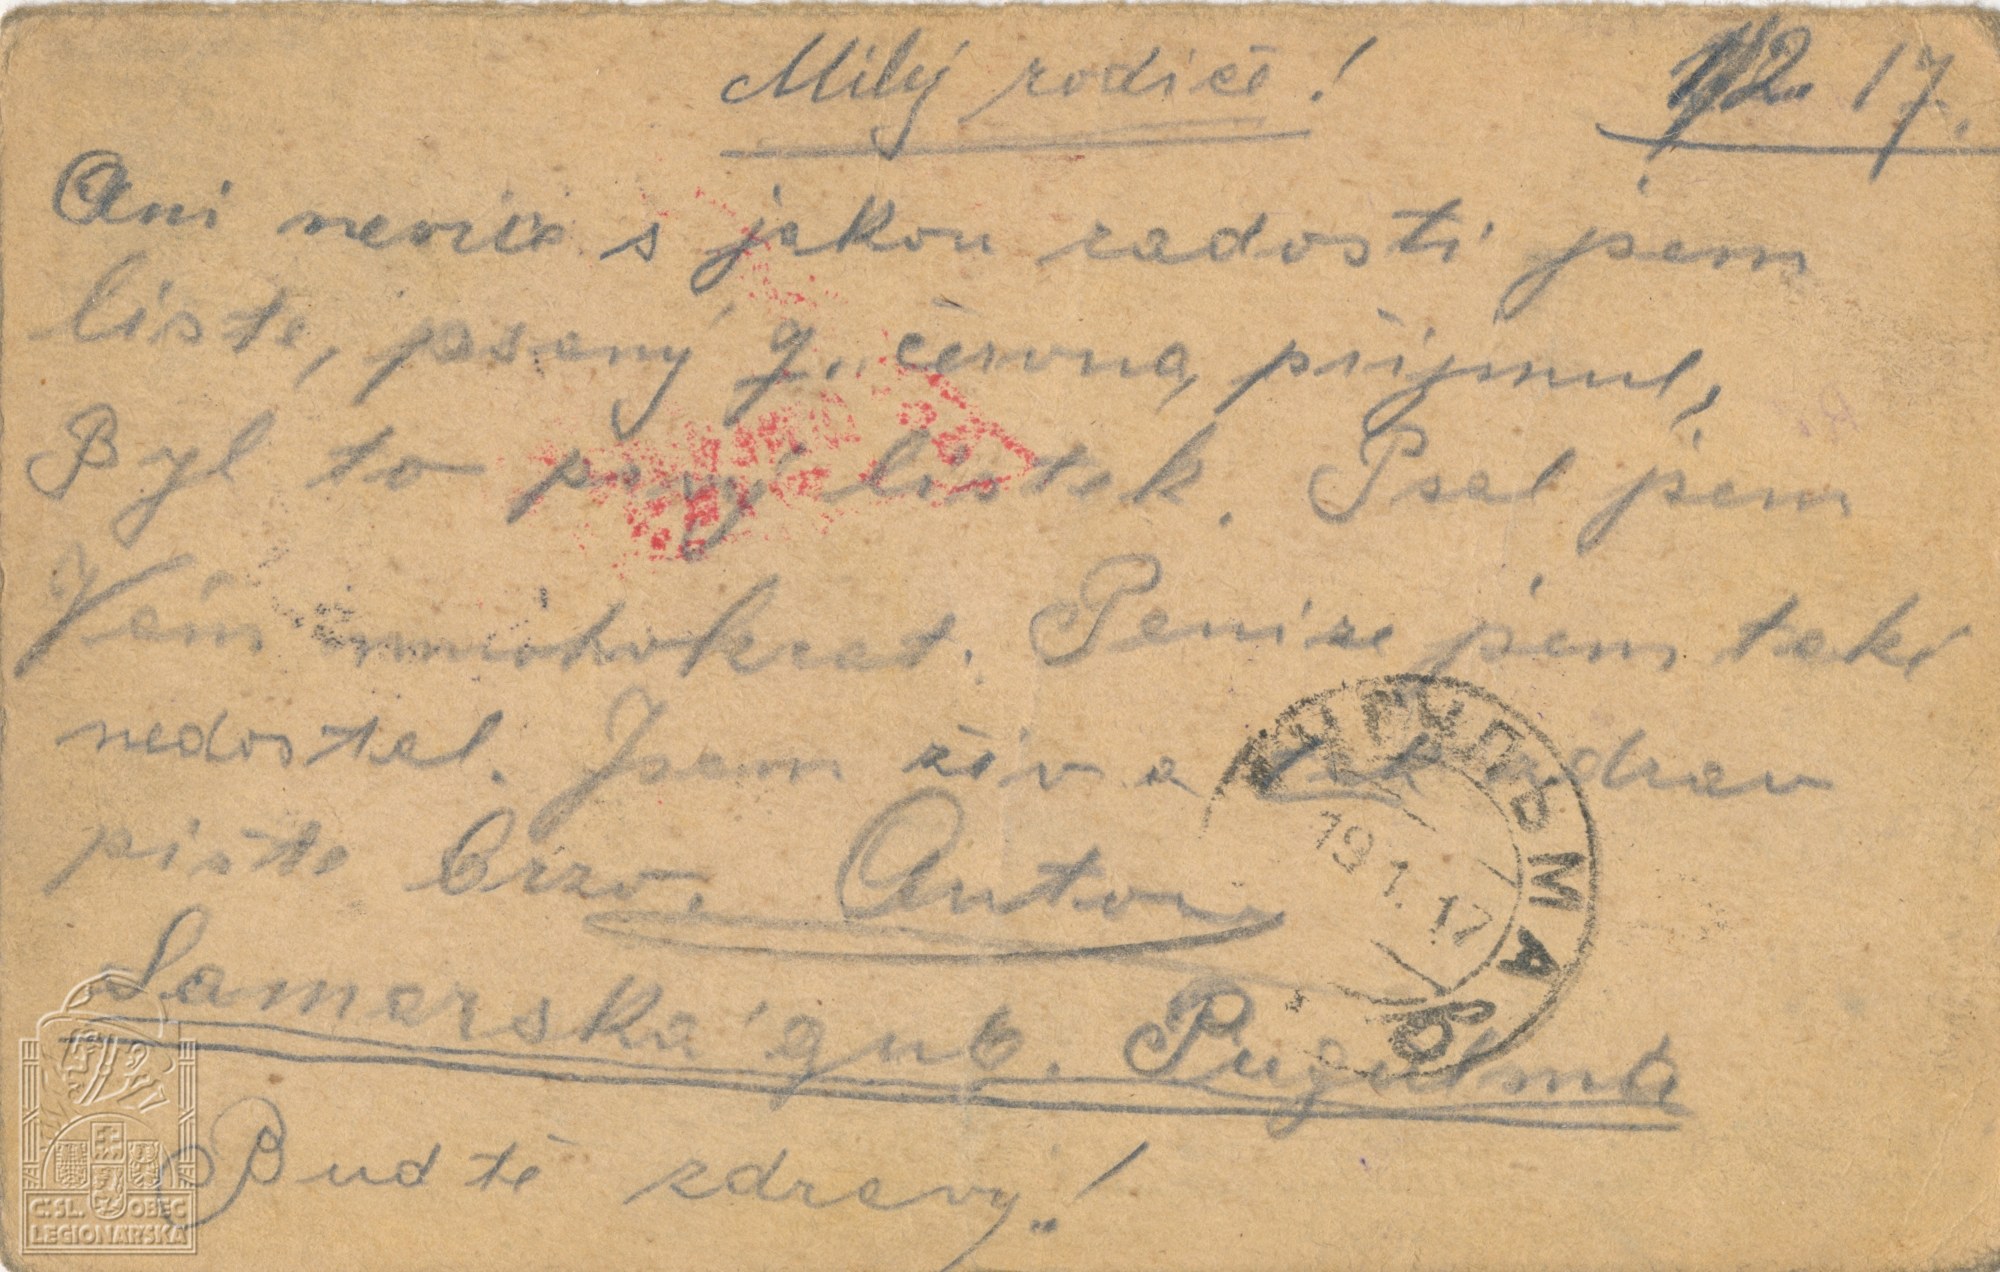 Milý rodiče! 1/2. 17.
Ani nevíte s jakou radosti jsem
liste, psaný 9. června, přijmul,
Byl to prvý lístek. Psal jsem
Vám mnohokrat. Penize jsem také
nedostal. Jsem živ a tak zdrav
pište brzo. Anton
Samarská gub. Pugulma
Buďtě zdravy!
БУГУЛЬМА
19 1. 17
Č:SL. OBEC
LEGIONÁŘSKÁ